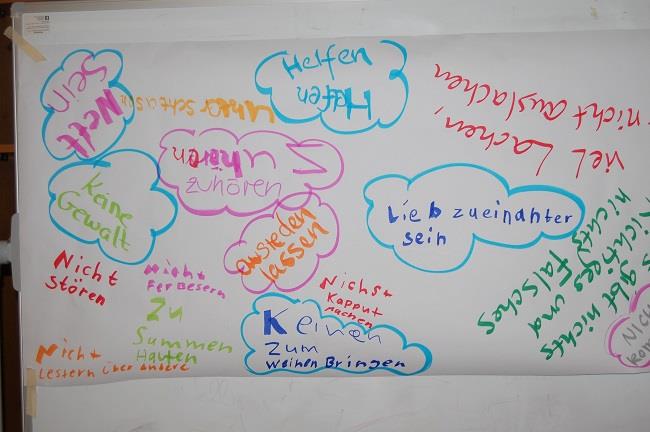 Nett
Sein
Helfen
Helfen
viel Lachen,
nicht auslachen
Zuhören
zuhören
Kaine
Gewalt
ausreden
lassen
Lieb zueinahter
sein
es gibt nichts
richtiges und
nichts
falsches
Nicht
stören
Nicht
Ferbesern
Zu
Summen
Halten
Nichst
Kapput
machen
Keinen
Zum
weinen Bringen
Nicht
Lestern über andere